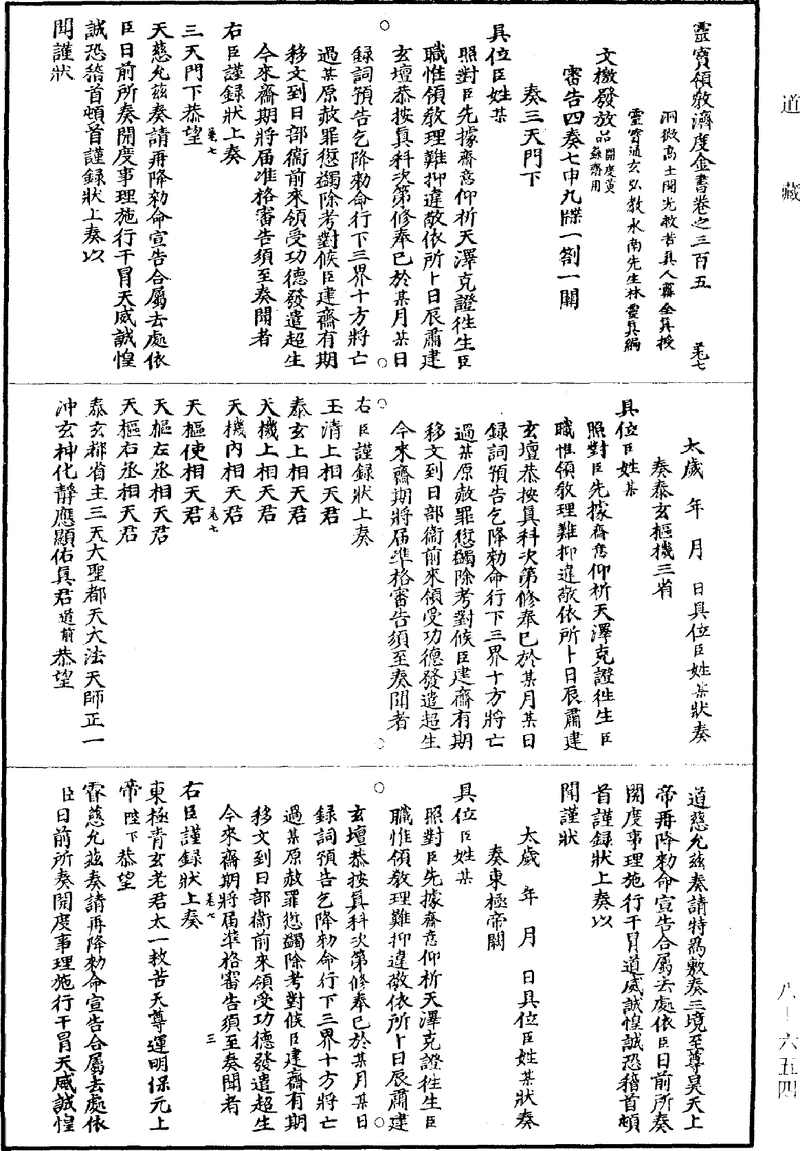 道藏
靈寶領教濟度金書卷之三百五 羌七
洞微高士開光救苦真人甯全真授
靈寶通玄弘教水南先生林靈真編
文檄發放品 開度黃籙齋用
審告四奏七申九牒一劄一關
奏三天門下
具位臣姓某
照對臣先據齋意仰祈天澤克證徃生臣
職惟領教理難抑違敬依所卜日辰肅建
玄壇恭按真科次第修奉已於某月某日
錄詞預告乞降勑命行下三界十方將亡
過某原赦罪愆蠲除考對候臣建齋有期
移文到日部衞前來領受功德發遣超生
今來齋期將届准格審告須至奏聞者
右臣謹錄狀上奏 羌七
三天門下恭望
天慈允兹奏請再降勑命宣告合屬去處依
臣日前所奏開度事理施行干冒天威誠惶
誠恐稽首頓首謹錄狀上奏以
聞謹狀
太歲 年 月 日具位臣姓某狀奏
奏泰玄樞機三省
具位臣姓某
照對臣先據齋意仰祈天澤克證徃生臣
職惟領教理難抑違敬依所卜日辰肅建
玄壇恭按真科次第修奉已於某月某日
錄詞預告乞降勑命行下三界十方將亡
過某原赦罪愆蠲除考對候臣建齋有期
移文到日部衞前來領受功德發遣超生
今來齋期將届準格審告須至奏聞者
右臣謹錄狀上奏
玉清上相天君
泰玄上相天君
天機上相天君
天機內相天君 羌七
天樞使相天君
天樞左丞相天君
天樞右丞相天君
泰玄都省主三天大聖都天大法天師正一
沖玄神化靜應顯佑真君道前恭望
道慈允兹奏請特爲敷奏三境至尊昊天上
帝再降勑命宣告合屬去處依臣日前所奏
開度事理施行干冒道威誠惶誠恐稽首頓
首謹錄狀上奏以
聞謹狀
太歲 年 月 日具位臣姓某狀奏
奏東極帝闕
具位臣姓某
照對臣先據齋意仰祈天澤克證徃生臣
職惟領教理難抑違敬依所卜日辰肅建
玄壇恭按真科次第修奉已於某月某日
錄詞預告乞降勑命行下三界十方將亡
過某原赦罪愆蠲除考對候臣建齋有期
移文到日部衞前來領受功德發遣超生
今來齋期將届準格審告須至奏聞者
右臣謹錄狀上奏 羌七 三
東極青玄老君太一救苦天尊運明保元上
帝陛下恭望
睿慈允兹奏請再降勑命宣告合屬去處依
臣日前所奏開度事理施行干冒天威誠惶
八–六五四